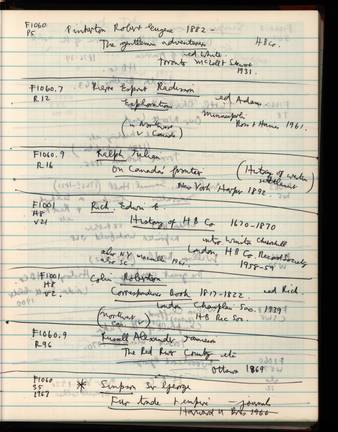 F1060
P5
Pinkerton Robert Eugene 1882 -
The gentlemen adventurers HBCo.
ed White.
Toronto McClell Stewart
1931.
F1060.7
R.12
Pierre Esprit Radisson
ed Adams
Exploration
Minneapolis
(in Northwest
& Canada)
Ross & Haines 1961.
F1060.9
R.16
Ralph Julian
On Canada's frontier
(History of western
settlement
New York Harper 1892
F1001
H8
V21
Rich, Edwin E
History of H B Co 1670-1870
intro Winston Churchill
London, H B Co. Record Society
1958-59
also NY
F1001
H8
V2.
Colin Robertson
Correspondence Book 1817-1822. ed Rich
London Champlain Soc. 1939
(Northwest
Co)
H B Rec Soc.
F1060.9
R96
Russell Alexander Jamieson
The Red River Country etc
Ottawa 1869
F1060
S5
1967
* Simpson Sir George
Fur trade & empire - journal
Harvard U Press 1960